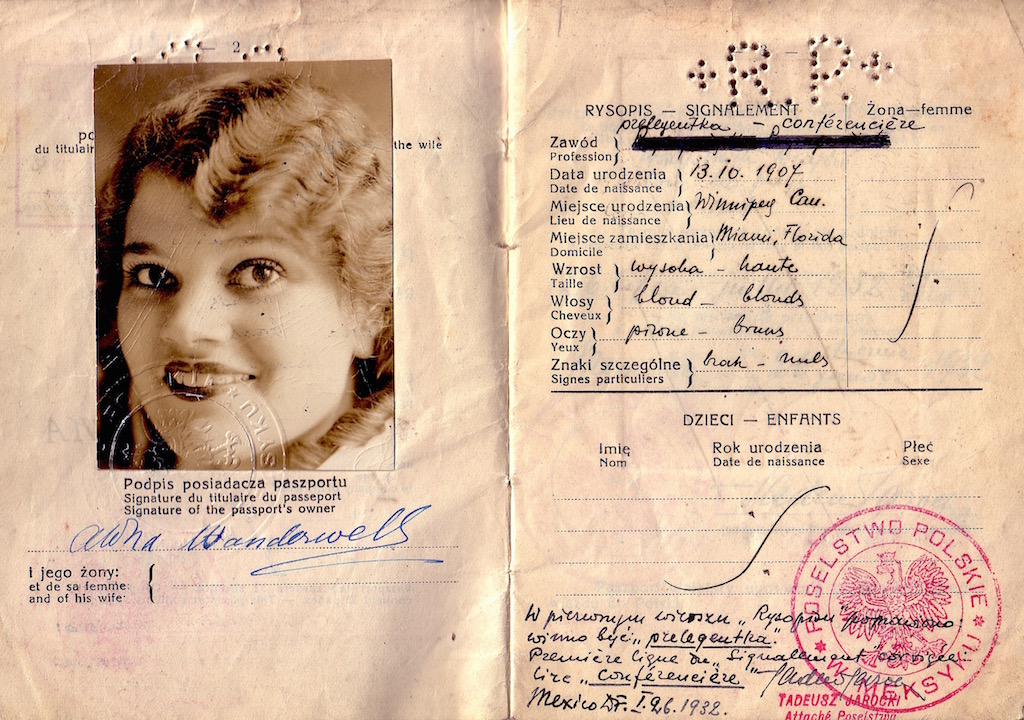 — 2 —
du titulair
the wife
Podpis posiadacza paszportu
Signature du titulaire du passeport
Signature of the passport's owner
Aloha Wanderwell
I jego żony:
et de sa femme:
and of his wife:
R.P.
RYSOPIS — SIGNALEMENT
Żona—femme
prelegentka - conférencière
Zawód
Profession
Data urodzenia 13.10. 1907
Date de naissance
Miejsce urodzenia Winnipeg Can.
Lieu de naissance
Miejsce zamieszkania Miami, Florida
Domicile
Wzrost wysoka - haute
Taille
Włosy blond - blonds
Cheveux
Oczy piwne - bruns
Yeux
Znaki szczególne brak - nuls
Signes particuliers
DZIECI — ENFANTS
Imię Rok urodzenia Płeć
Nom Date de naissance Sexe
POSELSTWO POLSKIE
W MEKSYKU
W pierwszym wierszu "Rysopisu" poprawiono:
winno być "prelegentka".
Première ligne du "Signalement" corrigée:
Lire "conférencière"
Mexico DF. I.26.1932.
TADEUSZ JAROCKI
Attaché Poselstwa